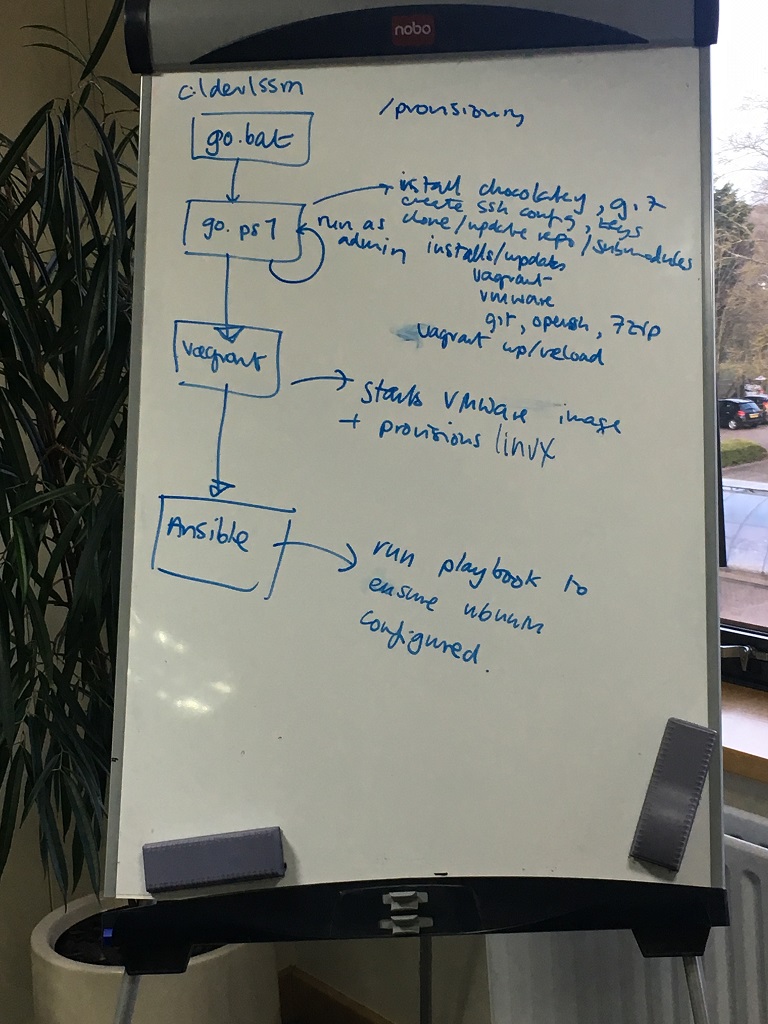 nobo
c:\dev\ssm
/provisioning
go.bat
go.ps1
run as
admin
install chocolatey, git
create ssh config, keys
clone/update repo/submodules
installs/updates
vagrant
vmware
git, openssh, 7zip
vagrant up/reload
vagrant
starts VMware image
+ provisions linux
Ansible
run playbook to
ensure ubuntu
configured.